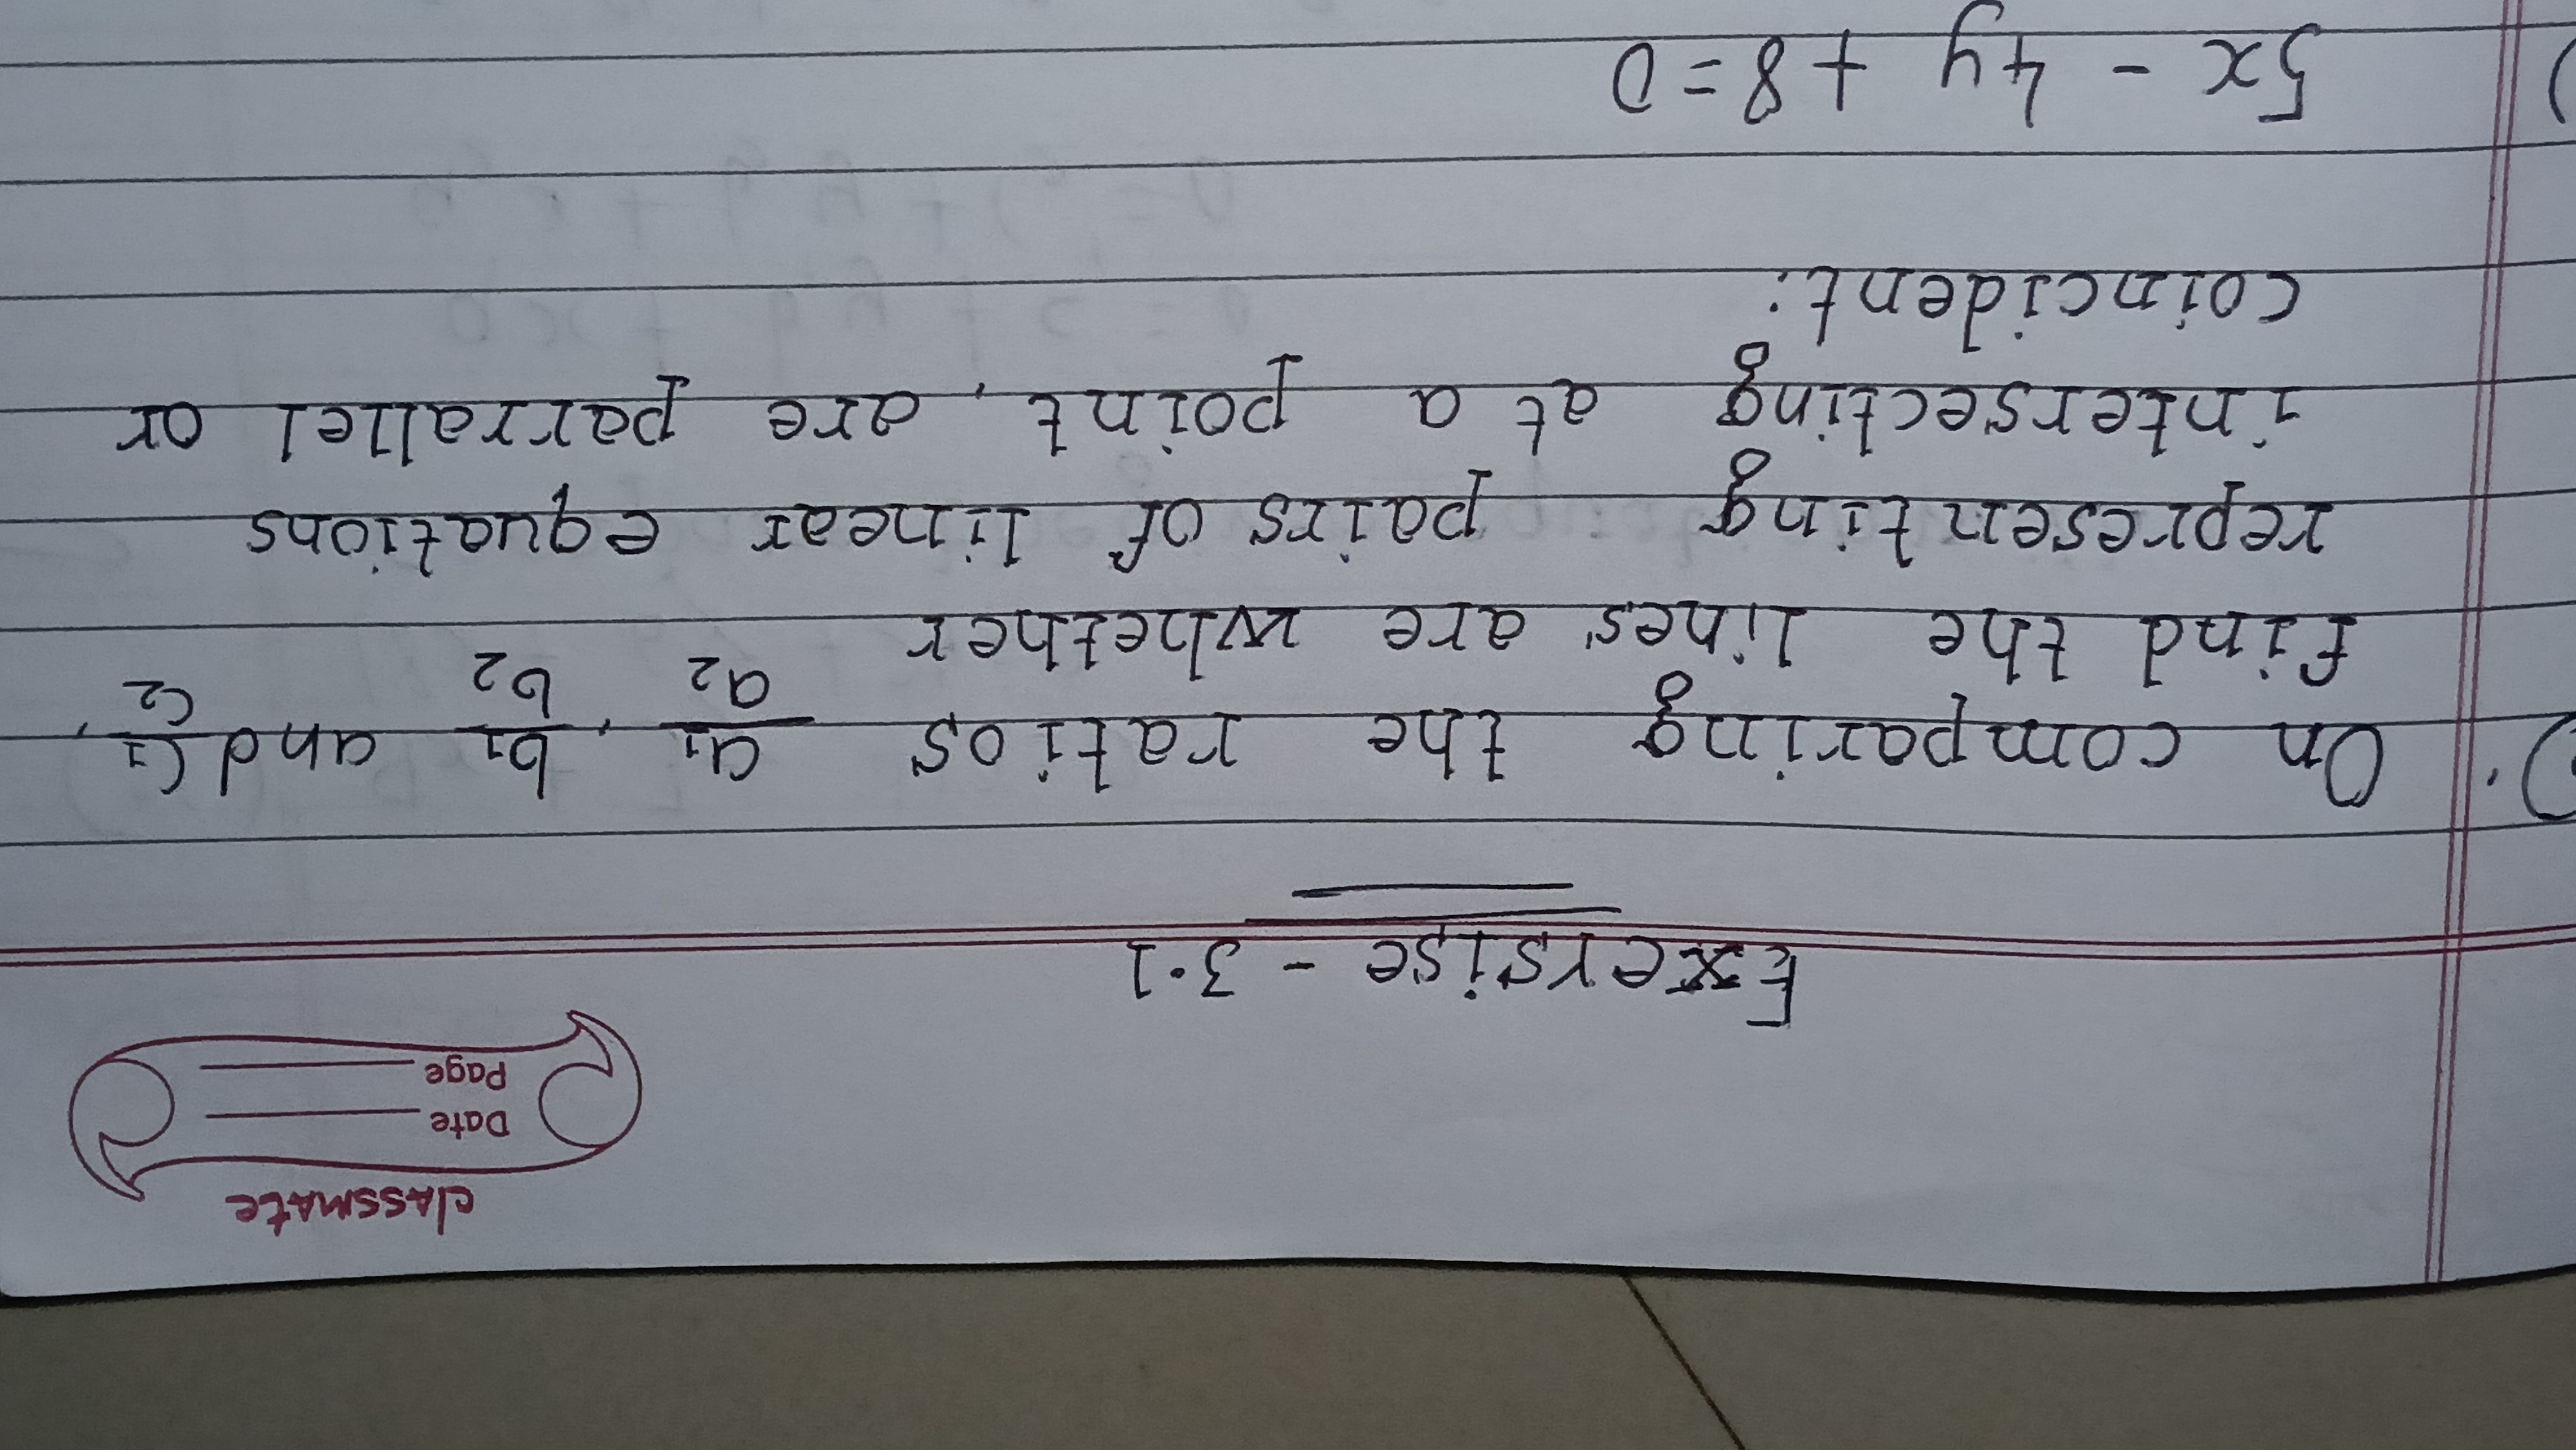 classmate
Date
Page
Exersise - 3.1
). On comparing the ratios a1/a2, b1/b2 and c1/c2,
find the lines are whether
representing pairs of linear equations
intersecting at a point, are parrallel or
coincident:
) 5x - 4y + 8 = 0